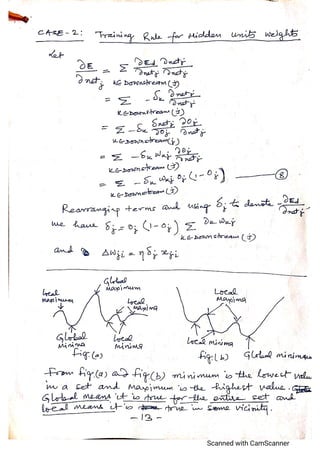 CASE-2: Training Rule for Hidden units weights
Let
∂E/∂net_j = Σ_{k∈Downstream(j)} ∂Ed/∂net_k ∂net_k/∂net_j
= Σ_{k∈Downstream(j)} -δk ∂net_k/∂net_j
= Σ_{k∈Downstream(j)} -δk ∂net_k/∂Oj ∂Oj/∂net_j
= Σ_{k∈Downstream(j)} -δk Wkj ∂Oj/∂net_j
= Σ_{k∈Downstream(j)} -δk Wkj Oj (1-Oj) — (8)
Rearranging terms and using δj to denote ∂Ed/∂net_j
we have δj = Oj (1-Oj) Σ_{k∈Downstream(j)} δk Wkj
and ΔWji = η δj xji
Global Maximum
Local Maximum
Local Maxima
Global Minima
Local Minima
Fig.(a)
Local Maxima
Local minima
Global minimum
Fig.(b)
From fig.(a) and fig.(b) minimum is the lowest value
in a set and Maximum is the highest value.
Global means it is true for the entire set and
local means it is true in some vicinity.
-13-
Scanned with CamScanner